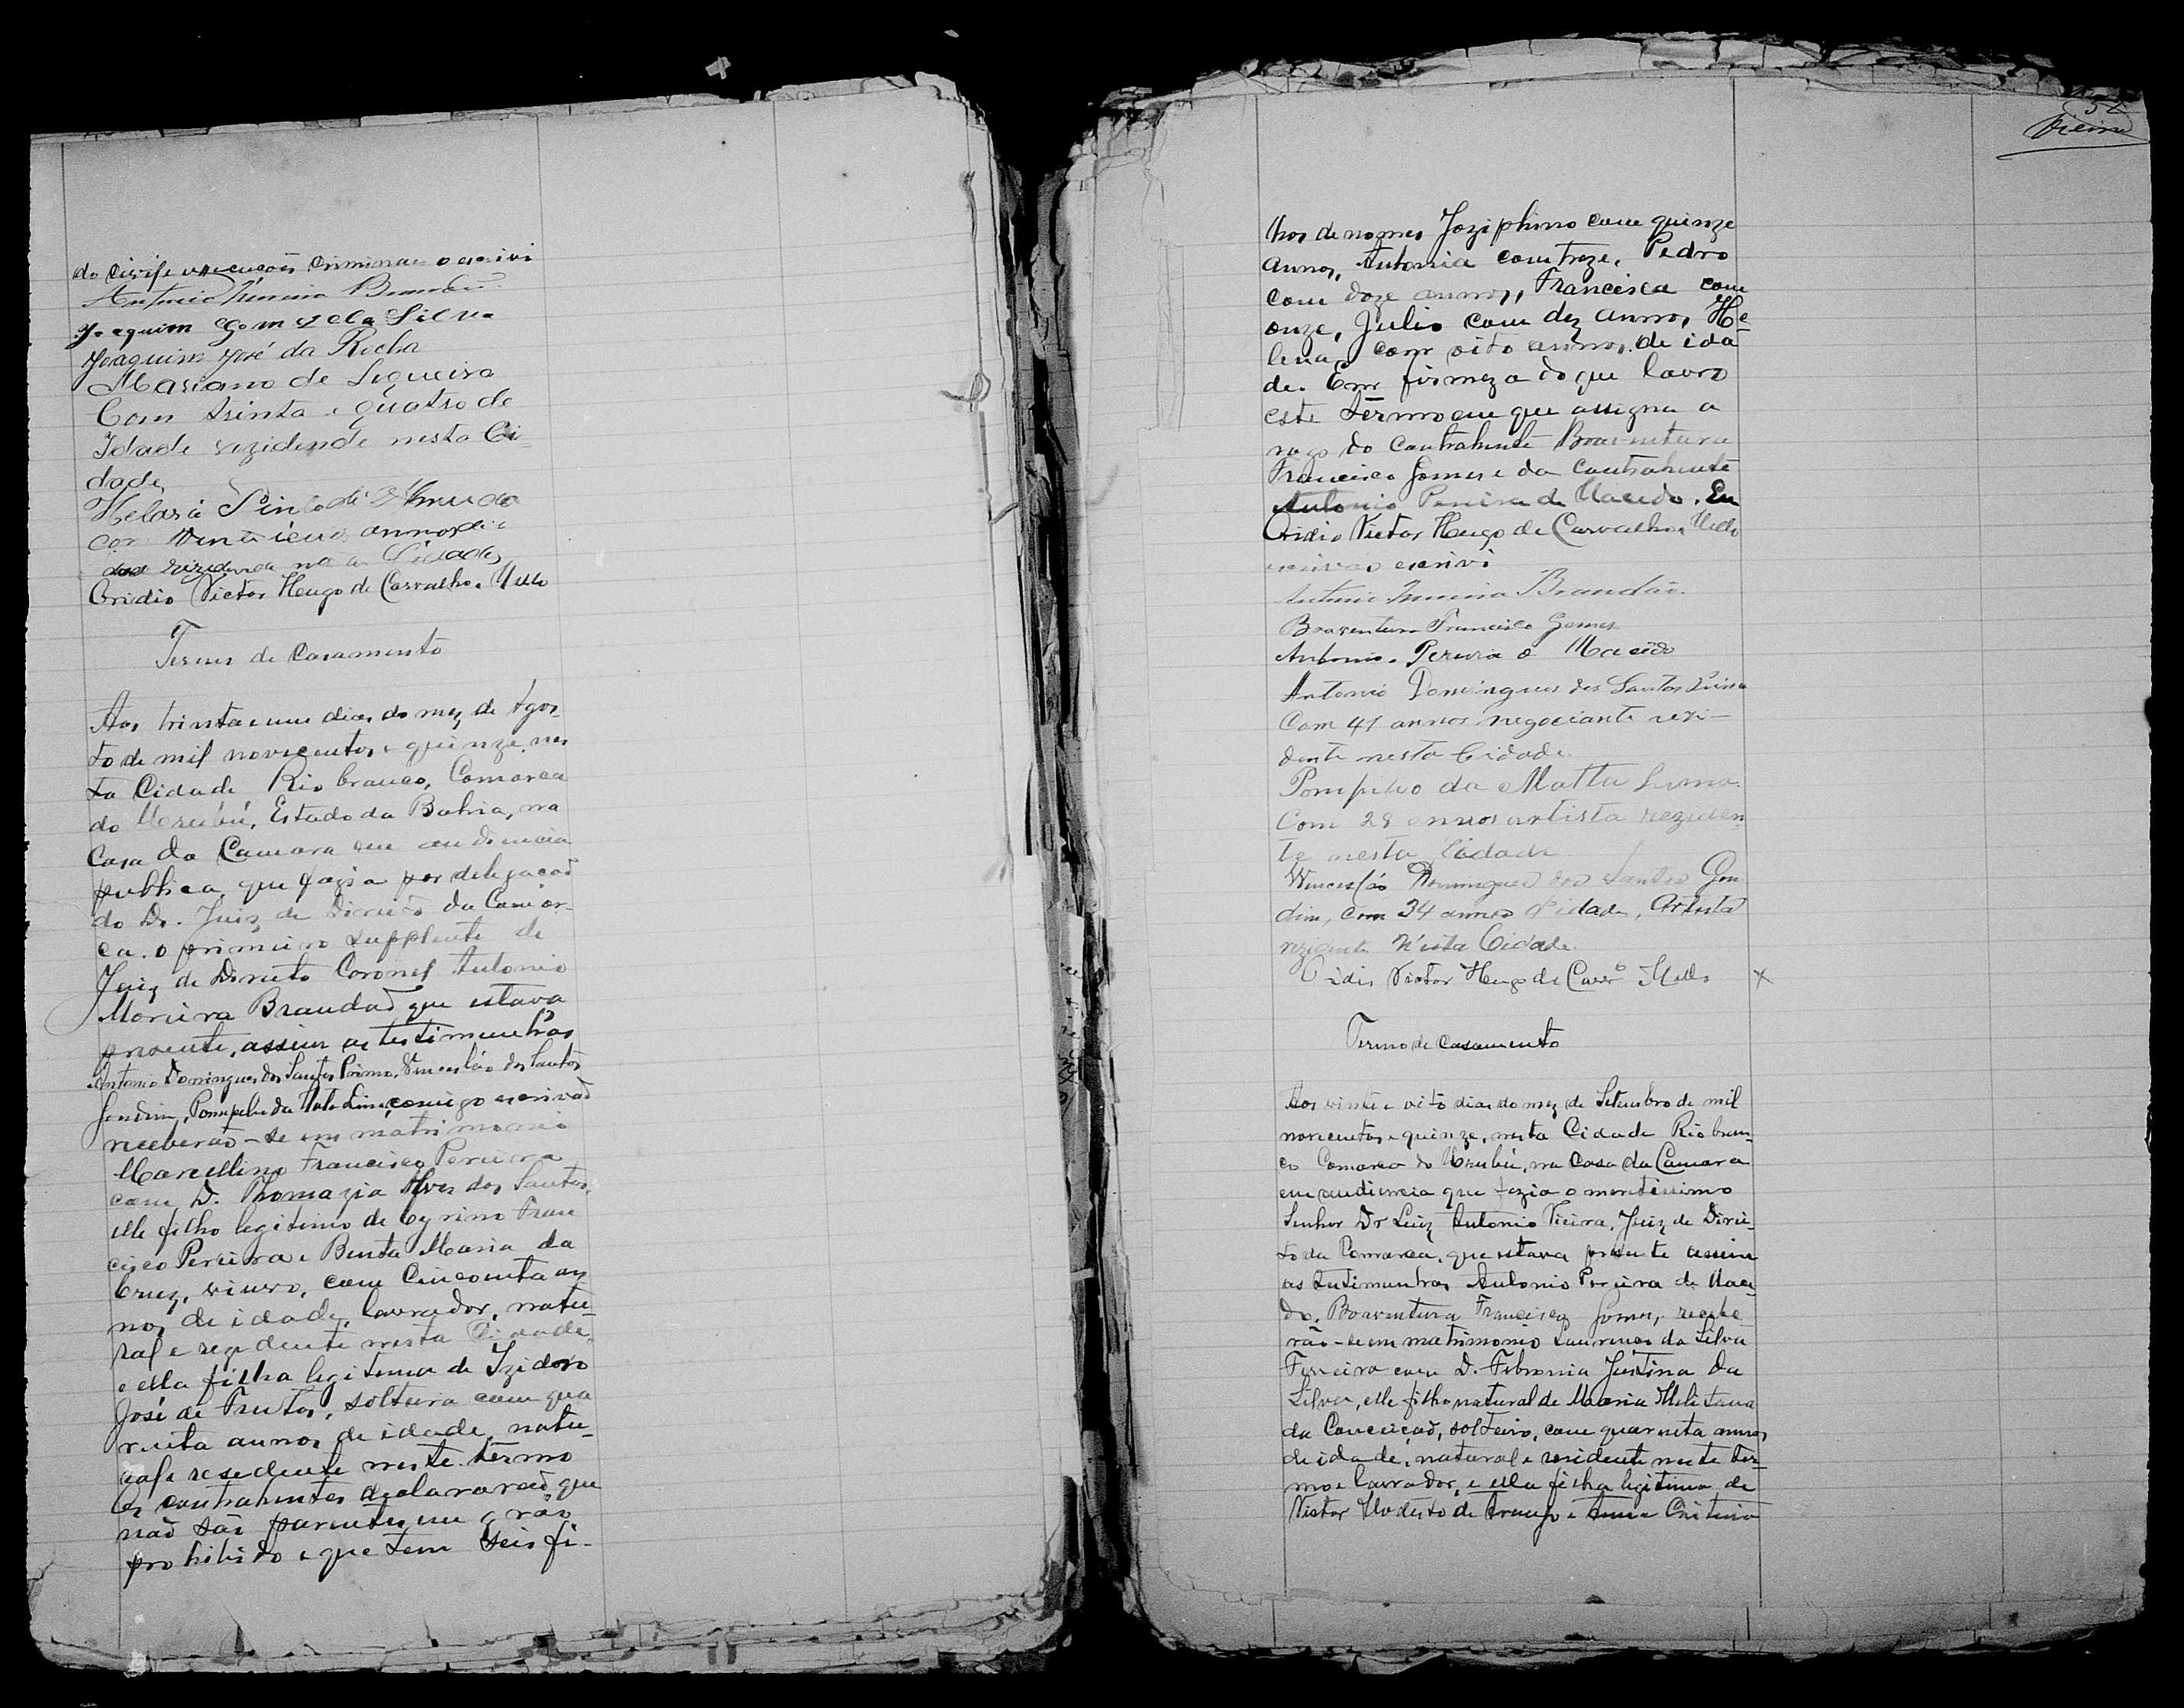 do civil e execuções criminaes o escrivi
Antonio Moreira Brandão
Joaquim Gomes da Silva
Joaquim José da Rocha
Mariano de Siqueira
Com trinta e quatro de
Idade rezidende nesta Ci-
dade
Pinto de Almeida
annos de
Cidade
Ovidio Victor Hugo de Carvalho e Mello
Termo de Casamento
Aos trinta e um dias do mez de Agos-
to de mil novecentos e quinze, nes
ta Cidade Rio branco, Comarca
do Urubú, Estado da Bahia, na
Casa da Camara em audiencia
publica, que fazia por delegação
do Dr. Juiz de Direito da Comar-
ca. o primeiro supplente de
Juiz de Direito Coronel Antonio
Moreira Brandão que estava
presente, assim as testimunhas
Antonio Domingues dos Santos Primo, Vencesláo dos Santos
Gondim, Pompilio da Mata Lima, comigo escrivaõ
receberaõ-se em matrimonio
Marcellino Francisco Pereira
com D. Thomazia Alves dos Santos,
elle filho legitimo de Cyrino Fran
cisco Pereira e Benta Maria da
Cruz, viuvo, com Cincoenta an
nos de idade, lavrador, natu-
ral e rezidente nesta Cidade,
e ella filha legitima de Izidoro
José de Freitas, solteira com qua
renta annos de idade, natu-
ral e resedente neste termo
Os contrahentes declararaõ que
naõ são parentes em gráo
prohibido e que tem seis fi-
lhos de nomes Joziphino com quinze
annos, Antonia com treze, Pedro
com doze annos, Francisca com
onze, Julio com dez annos, He-
lena com oito annos de ida
de. Em firmeza do que lavro
este termo em que assigna a
rogo do contrahente Boaventura
Francisco Gomes e da contrahente
Antonio Pereira de Macedo. Eu
Ovidio Victor Hugo de Carvalho e Mello
escrivão escrivi
Antonio Moreira Brandão.
Boaventura Francisco Gomes
Antonio Pereira Macêdo
Antonio Domingues dos Santos Primo
Com 41 annos negociante rezi-
dente nesta Cidade
Pompilio da Matta Lima
Com 28 annos artista reziden
te nesta Cidade
Wenceslão Domingues dos Santos Gon
dim, com 34 annos d'idade, Artista
rezidente n'esta Cidade.
Ovidio Victor Hugo de Carvº Mello X
Termo de Casamento
Aos vinte e oito dias do mez de Setembro de mil
novecentos e quinze, nesta Cidade Rio bran-
co Comarca do Urubú, na Casa da Camara
em audiencia que fazia o meritissimo
Senhor Dr Luiz Antonio Vieira, Juiz de Direi-
to da Comarca, que estava presente assim
as testimunhas Antonio Pereira de Mace-
do, Boaventura Francisco Gomes, recebe-
rão-se em matrimonio Laurenço da Silva
Ferreira com D. Febronia Justina da
Silva, elle filho natural de Maria Melitana
da Conceiçaõ, solteiro, com quarenta annos
de idade, natural e residente neste ter-
mo e lavrador, e ella filha legitima de
Victor Modesto de Araujo e Anna
52
Vieira